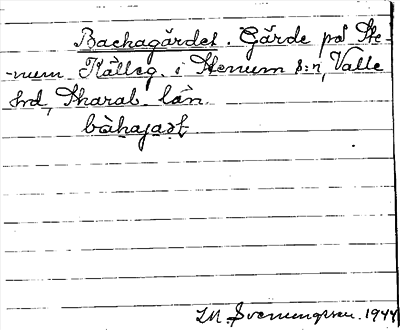 Backagärdet. Gärde på Ste-
-num Källeg. i Stenum s:n, Valle
hd, Skarab. län.
bàkajạṣt
Svenungsson. 1944